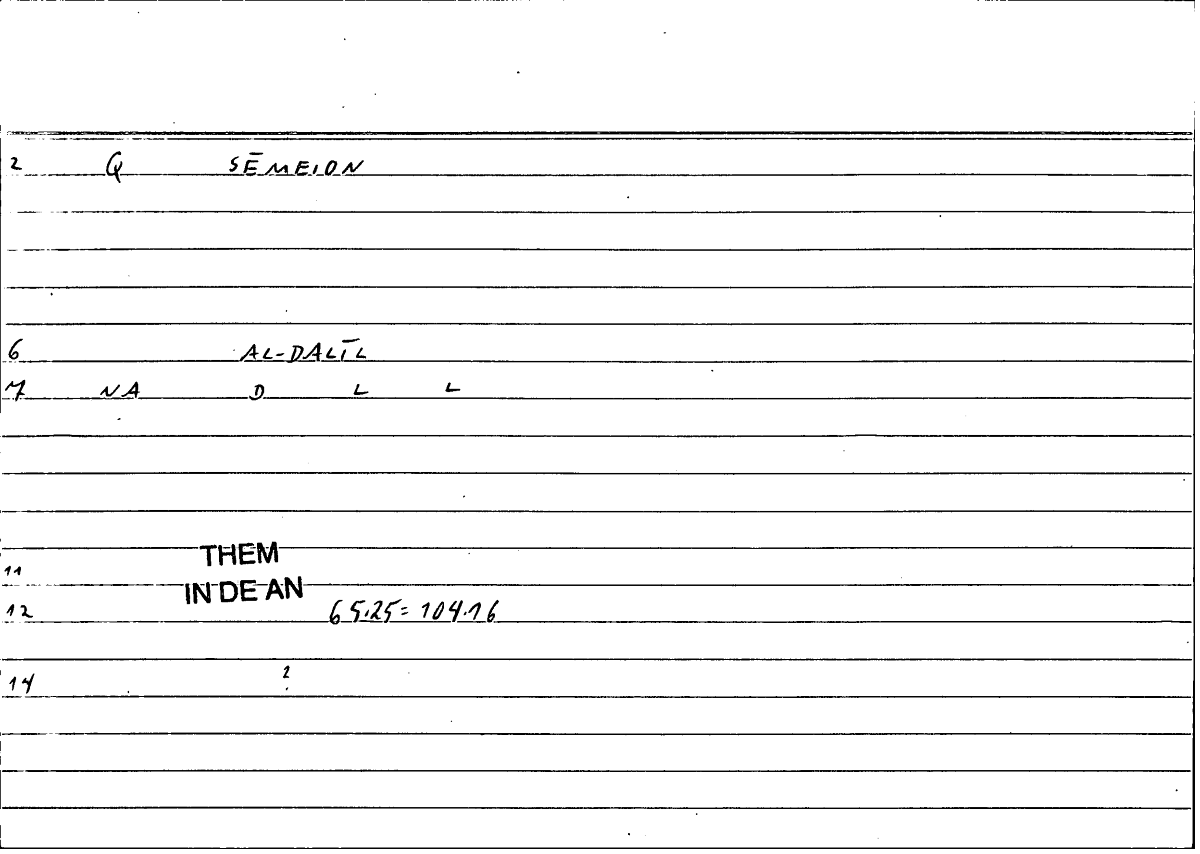 2 Q SĒMEION
6 AL-DALĪL
7 NA D L L
11 THEM
IN DE AN
12 65.25=104.16
14 ?